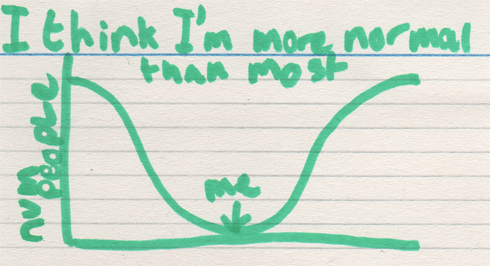 I think I'm more normal
than most
num
people
me